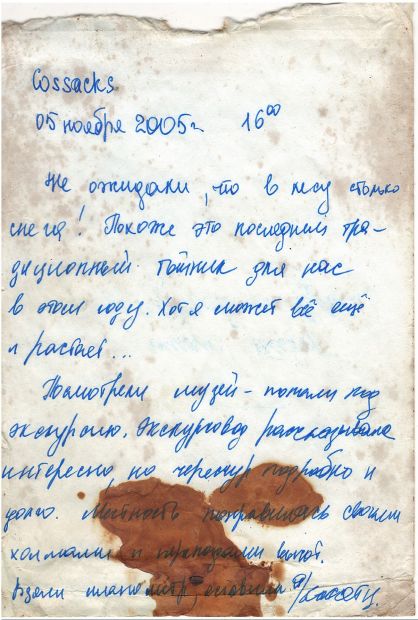 Cossacks
05 ноября 2005г. 16⁰⁰
Не ожидали, что в лесу столько
снега! Похоже это последний тра-
диционный тайник для нас
в этом году. Хотя может всё ещё
и растает...
Посмотрели музей - попали под
экскурсию. Экскурсовод рассказывала
интересно но чересчур подробно и
долго. Местность понравилась своими
холмами и перепадами высот.
Взяли манометр, оставили